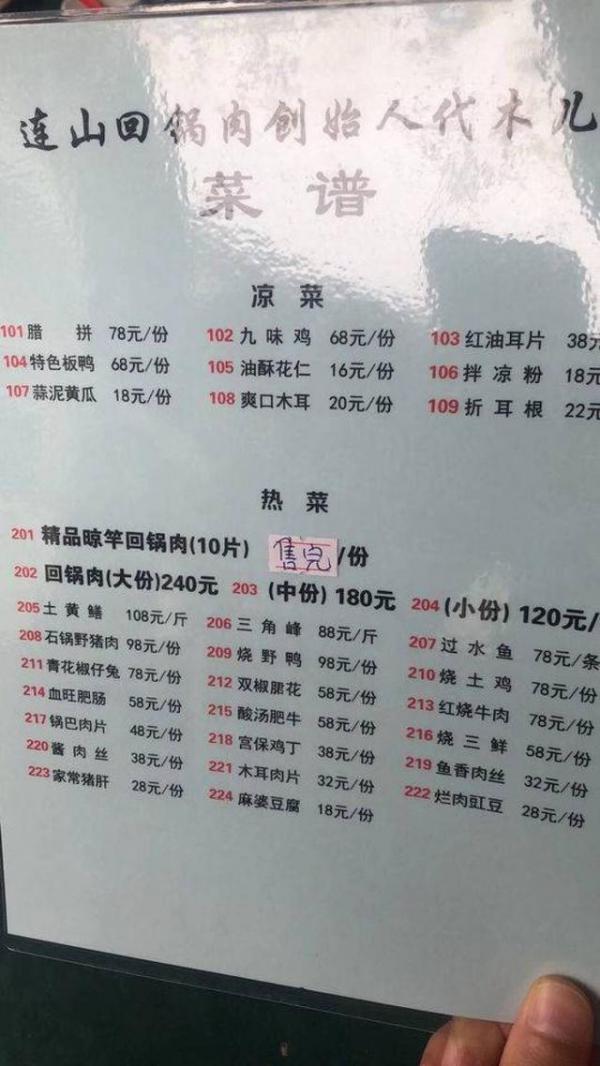 连山回锅肉创始人代木儿
菜谱
凉菜
101腊拼 78元/份 102九味鸡 68元/份 103红油耳片 38元
104特色板鸭 68元/份 105油酥花仁 16元/份 106拌凉粉 18元
107蒜泥黄瓜 18元/份 108爽口木耳 20元/份 109折耳根 22元
热菜
201 精品晾竿回锅肉(10片) 售完/份
202 回锅肉(大份)240元 203 (中份) 180元 204 (小份) 120元/
205土黄鳝 108元/斤 206三角峰 88元/斤 207过水鱼 78元/条
208石锅野猪肉 98元/份 209烧野鸭 98元/份 210烧土鸡 78元/份
211青花椒仔兔 78元/份 212双椒䐁花 58元/份 213红烧牛肉 78元/份
214血旺肥肠 58元/份 215酸汤肥牛 58元/份 216烧三鲜 58元/份
217锅巴肉片 48元/份 218宫保鸡丁 38元/份 219鱼香肉丝 32元/份
220酱肉丝 38元/份 221木耳肉片 32元/份 222烂肉豇豆 28元/份
223家常猪肝 28元/份 224麻婆豆腐 18元/份